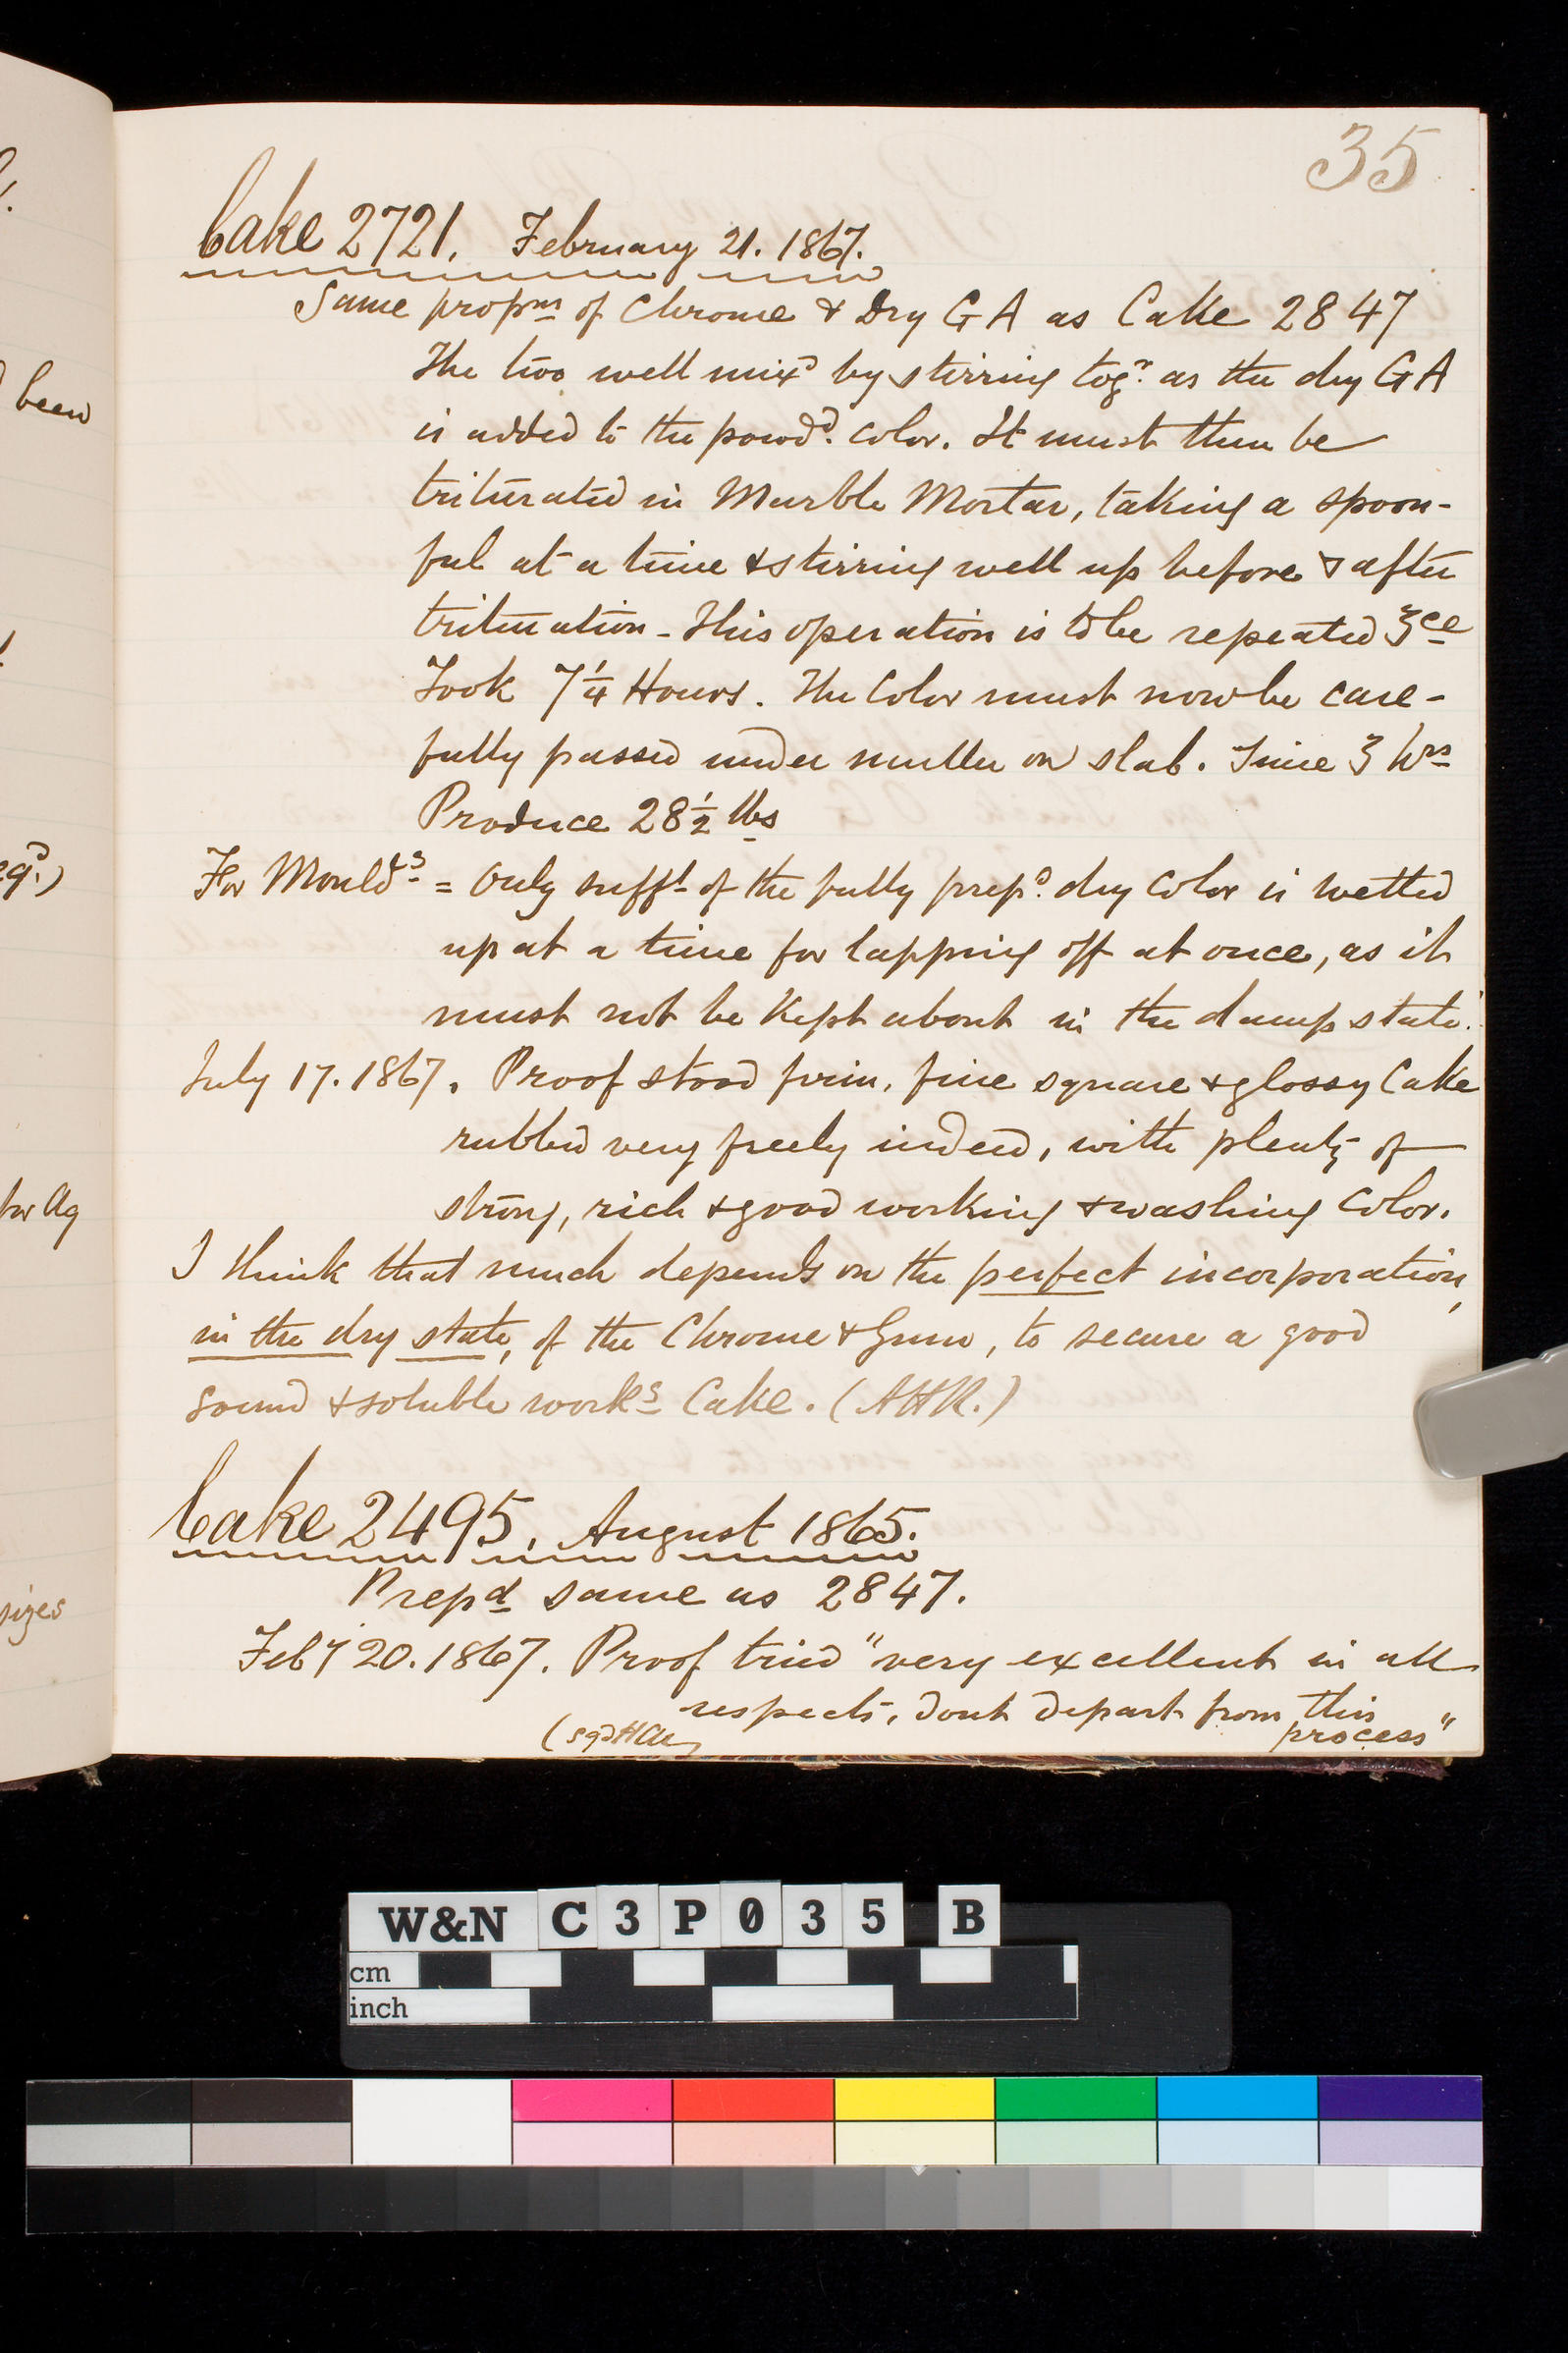 35
Cake 2721. February 21. 1867.
Same propns of Chrome & Dry G A as Cake 2847
The two well mixd by stirring togr. as the dry G A
is added to the powdd. color. It must then be
triturated in Marble Mortar, taking a spoon-
ful at a time & stirring well up before & after
trituration - This operation is to be repeated 3ce
Took 7 1/4 Hours. The Color must now be care-
fully passed under muller on slab. Time 3 hrs
Produce 28 1/2 lbs
For Mouldgs = Only sufft of the fully prepd. dry Color is wetted
up at a time for lapping off at once, as it
must not be kept about in the damp state.
July 17. 1867. Proof stood firm, fine square & glossy Cake
rubbed very freely indeed, with plenty of
strong, rich & good working & washing Color.
I think that much depends on the perfect incorporation,
in the dry state, of the Chrome & Gum, to secure a good
sound & soluble workg Cake. (AHR.)
Cake 2495. August 1865.
Prepd same as 2847.
Feby 20. 1867. Proof tried "very excellent in all
respects, dont depart from this
process"
(sgd
been
for Ag
sizes
W&N C3P035 B
cm
inch